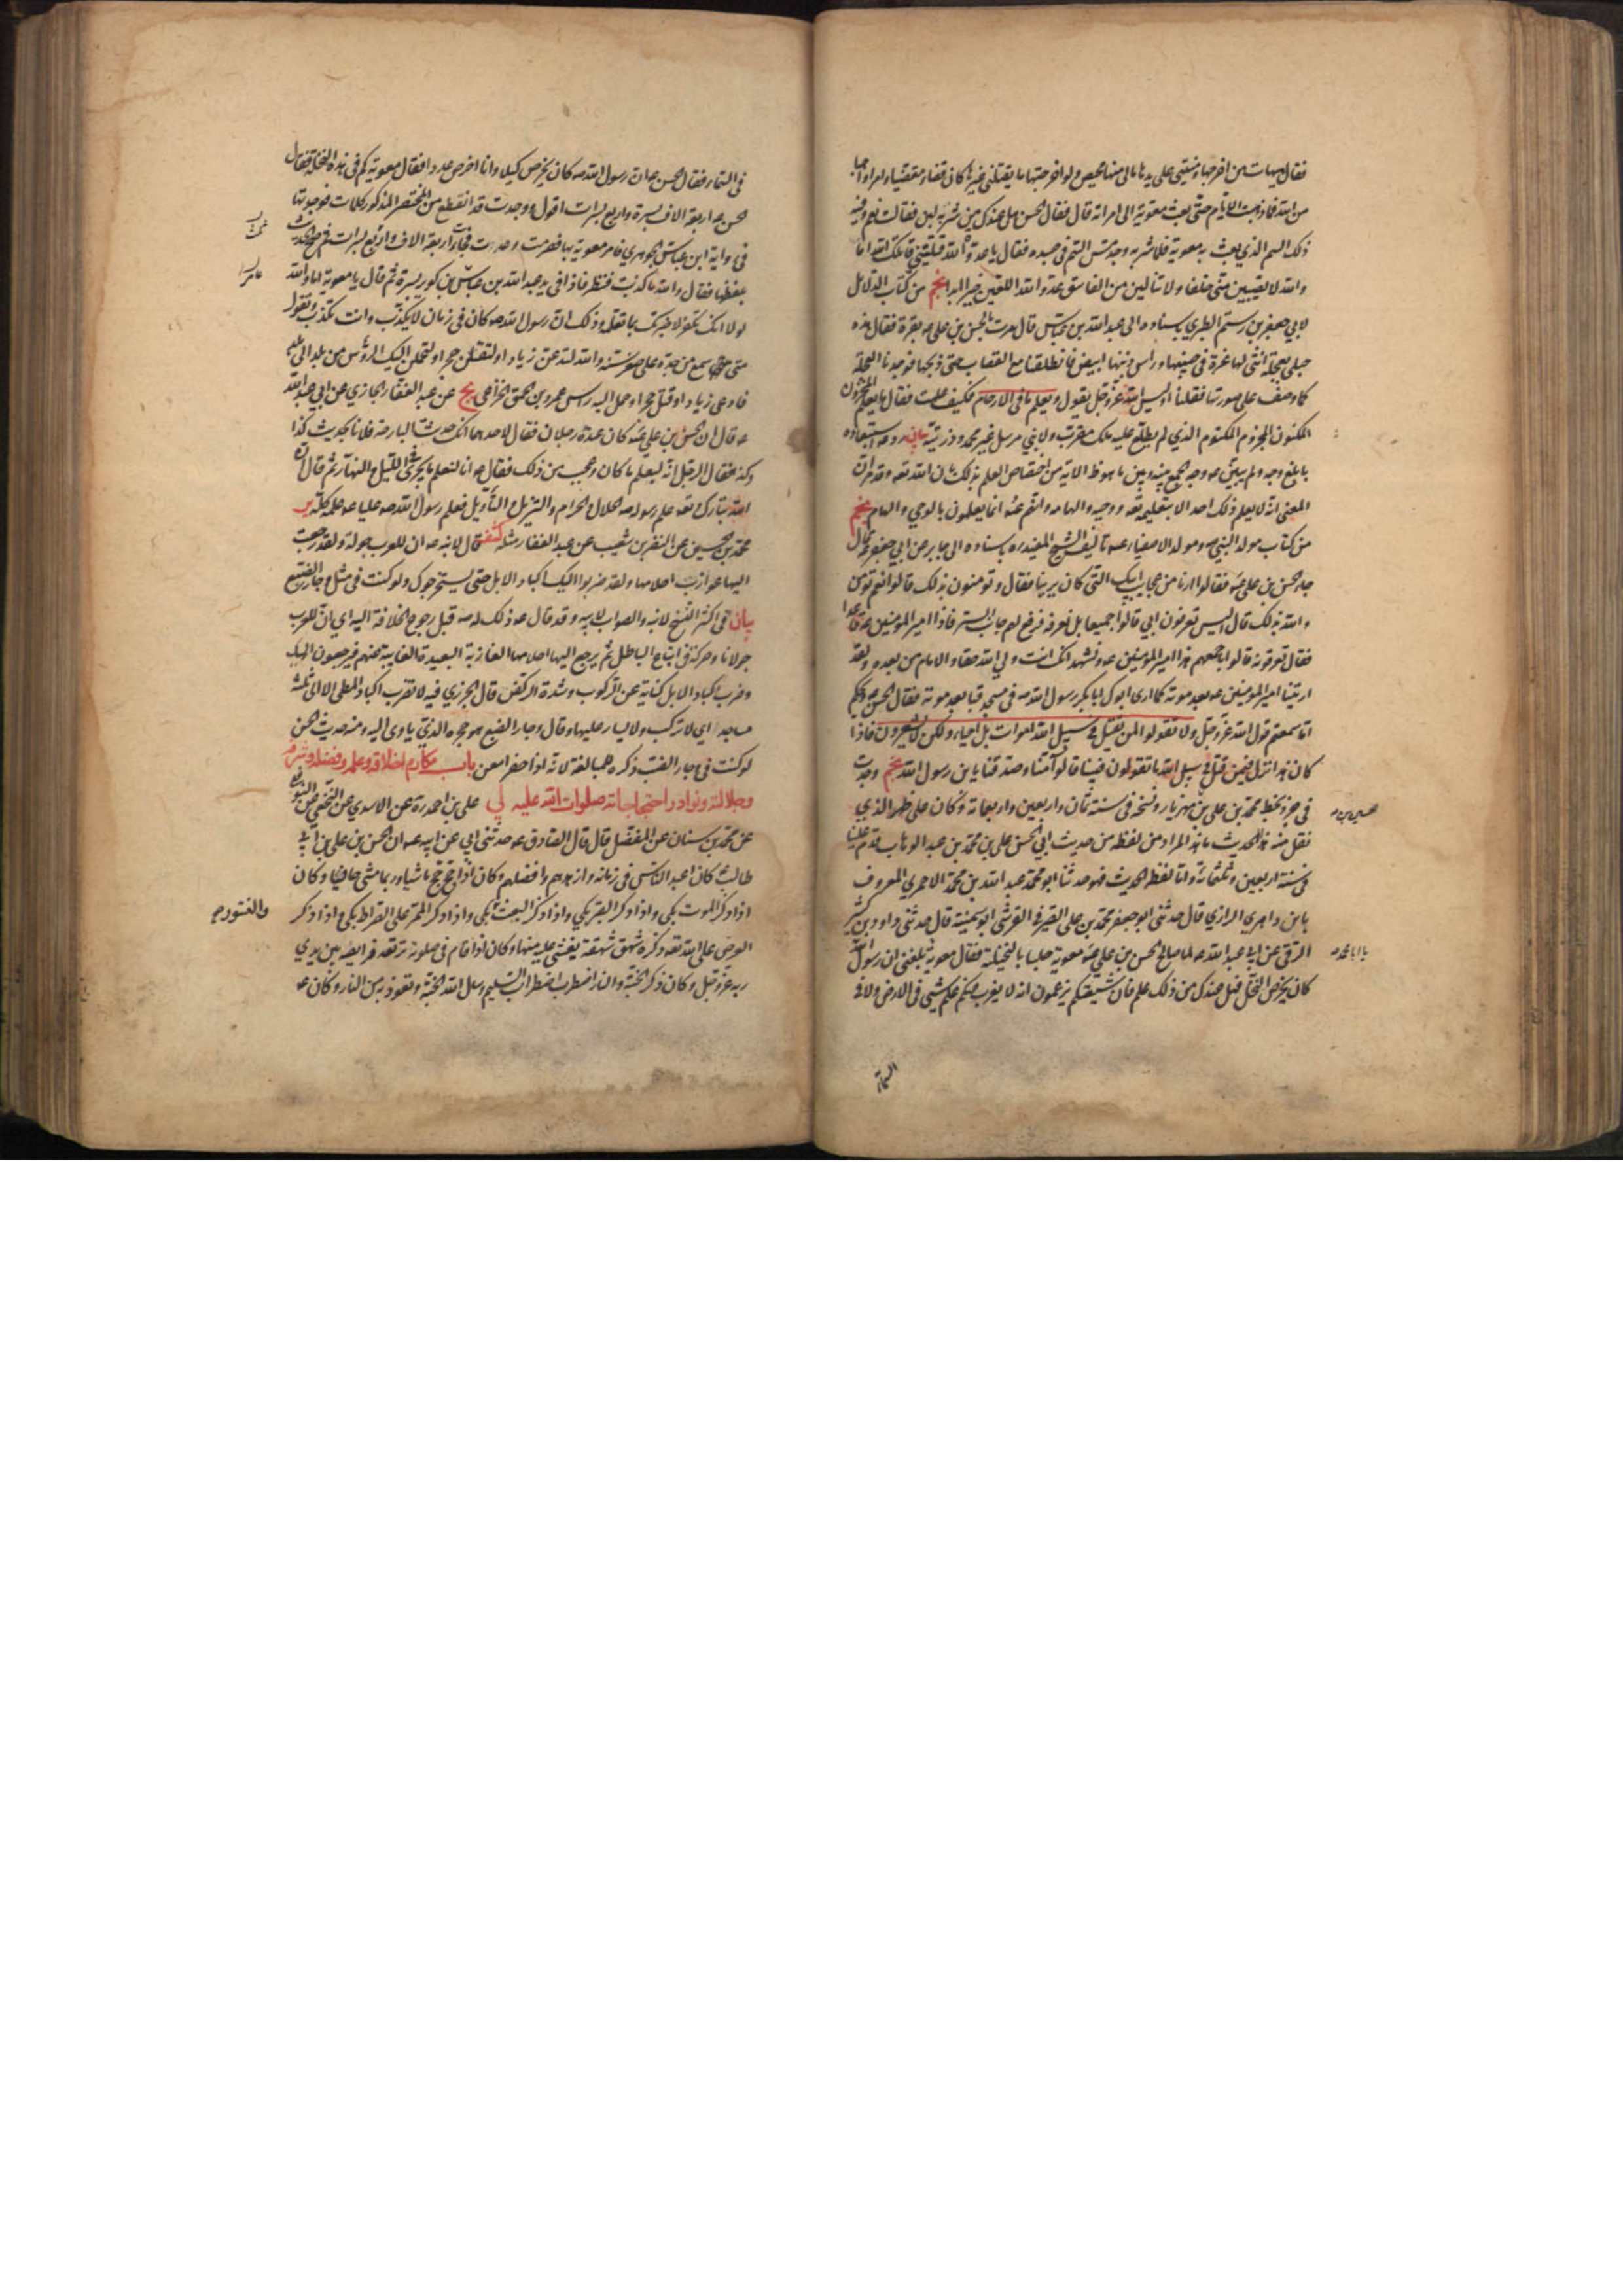 فقال هيهات من اخرجها ومنيتي على يدها مالي منها محيص ولو اخرجتها ما يقتلني غيرها كان قضاء مقضيا وامرا واجبا
من الله فما ذهبت الايام حتى بعث معوية الى امراته قال فقال الحسن هل عندك من شربة لبن فقالت نعم وفيه
ذلك السم الذي بعث به معوية فلما شربه وجد مس السم في جسده فقال يا عدوة الله قتلتيني قاتلك الله اما
والله لا تصيبين مني خلفا ولا تنالين من الفاسق عدو الله اللعين خيرا ابدا نجم من كتاب الدلائل
لابي جعفر بن رستم الطبري باسناده الى عبد الله بن عباس قال مرت بالحسن بن علي ع بقرة فقال هذه
حبلى بعجلة انثى لها غرة في جبينها وراس ذنبها ابيض فانطلقنا مع القصاب حتى ذبحها فوجدنا العجلة
كما وصف على صورتها فقلنا اوليس الله عز وجل يقول ويعلم ما في الارحام فكيف علمت فقال ما يعلم المخزون
المكنون المجزوم المكتوم الذي لم يطلع عليه ملك مقرب ولا نبي مرسل غير محمد وذريته بيان رد عه استبعاده
بابلغ وجه ولم يبين ع وجه الجمع بينه وبين ما هو ظ الاية من اختصاص العلم بذلك بالله تعه وقد مر ان
المعنى انه لا يعلم ذلك احد الا بتعليمه تعه ووحيه والهامه وانهم عه انما يعلمون بالوحي والهام نجم
من كتاب مولد النبي صه ومولد الاصفياء عه تاليف الشيخ المفيد ره باسناده الى جابر عن ابي جعفر ع قال
جاء الحسن بن علي ع فقالوا ارنا من عجايب ابيك التي كان يرينا فقال وتؤمنون بذلك قالوا نعم نؤمن
والله بذلك قال اليس تعرفون ابي قالوا جميعا بل نعرفه فرفع لهم جانب الستر فاذا امير المؤمنين عه قاعدا
فقال تعرفونه قالوا باجمعهم هذا امير المؤمنين عه ونشهد انك انت ولي الله حقا والامام من بعده ولقد
اريتنا امير المؤمنين عه بعد موته كما ارى ابوك ابا بكر رسول الله صه في مسجد قبا بعد موته فقال الحسن عه ويحكم
اما سمعتم قول الله عز وجل ولا تقولوا لمن يقتل في سبيل الله اموات بل احياء ولكن لا تشعرون فاذا
كان هذا نزل فيمن قتل في سبيل الله ما تقولون فينا قالوا آمنا وصدقنا يا بن رسول الله نجم وجدت
في جزء بخط محمد بن علي بن مهزيار ونسخه في سنة ثمان واربعين واربعماة وكان على ظهر الذي
نقل منه هذا الحديث ما هذا المراد من لفظه من حديث ابي الحسن علي بن محمد بن عبد الوهاب قدم علينا
في سنة اربعين وثلثمائة واما لفظ الحديث فهو حدثنا ابو محمد عبد الله بن محمد الاحمري المعروف
بابن داهر الرازي قال حدثني ابو جعفر محمد بن علي الصيرفي القرشي ابو سمينة قال حدثني داود بن كثير
الرقي عن ابي عبد الله عه لما صالح الحسن بن علي ع معوية جلسا بالنخيلة فقال معوية بلغني ان رسول الله
كان يخرص النخل فهل عندك من ذلك علم فان شيعتكم يزعمون انه لا يعزب عنكم علم شيء في الارض ولا في
حسين بن
يا ابا محمد
السماء
في السماء فقال الحسن ع ان رسول الله صه كان يخرص كيلا وانا اخرص عددا فقال معوية كم في هذه النخلة فقال
الحسن ع اربعة الاف بسرة واربع بسرات اقول ووجدت قد انقطع من المختصر المذكور كلمات فوجدتها
في رواية ابن عباس الجوهري فامر معوية بها فصرمت وعدت فجاءت اربعة الاف واربع بسرات ثم صح الحديث
بلفظها فقال والله ما كذبت فنظر فاذا في يد عبد الله بن عباس بن كريز بسرة ثم قال يا معوية اما والله
لولا انك تكفر لاخبرتك بما تعلمه وذلك ان رسول الله صه كان في زمان لا يكذب وانت تكذب وتقول
متى سمع من جده على صغر سنه والله لتدعن زيادا ولتقتلن حجرا ولتحملن اليك الرؤس من بلد الى بلد
فادعى زيادا وقتل حجرا وحمل اليه راس عمرو بن الحمق الخزاعي يج عن عبد الغفار الجازي عن ابي عبد الله
ع قال ان الحسن بن علي ع كان عنده رجلان فقال لاحدهما انك حدثت البارحة فلانا بحديث كذا
وكذا فقال الرجل انه ليعلم ما كان وعجب من ذلك فقال ع انا لنعلم ما يجري في الليل والنهار ثم قال ان
الله تبارك وتعه علم رسوله صه الحلال والحرام والتنزيل والتاويل فعلم رسول الله صه عليا عه علمه كله ير
محمد بن الحسين عن النضر بن شعيب عن عبد الغفار مثله كشف قال لابنه ع ان للعرب جولة ولقد رجعت
اليها عوازب احلامها ولقد ضربوا اليك اكباد الابل حتى يستخرجوك ولو كنت في مثل وجار الضبع
بيان في اكثر النسخ لابنه والصواب لابيه وقد قال عه ذلك له عه قبل رجوع الخلافة اليه اي ان للعرب
جولانا وحركة في اتباع الباطل ثم يرجع اليها احلامها العازبة البعيدة الغايبة عنهم فيرجعون اليك
وضرب اكباد الابل كناية عن الركوب وشدة الركض قال الجزري فيه لا تضرب اكباد المطي الا الى ثلثة
مساجد اي لا تركب ولا يسار عليها وقال وجار الضبع هو جحره الذي ياوى اليه ومنه حديث الحسن
لو كنت في وجار الضب ذكره للمبالغة لانه اذا حفر امعن باب مكارم اخلاقه وعلمه وفضله وشرفه
وجلالته ونوادر احتجاجاته صلوات الله عليه لي علي بن احمد ره عن الاسدي عن النخعي عن النوفلي
عن محمد بن سنان عن المفضل قال قال الصادق عه حدثني ابي عن ابيه عه ان الحسن بن علي بن ابي
طالب ع كان اعبد الناس في زمانه وازهدهم وافضلهم وكان اذا حج حج ماشيا وربما مشى حافيا وكان
اذا ذكر الموت بكى واذا ذكر القبر بكى واذا ذكر البعث بكى واذا ذكر الممر على الصراط بكى واذا ذكر
العرض على الله تعه ذكره شهق شهقة يغشى عليه منها وكان اذا قام في صلوته ترتعد فرايصه بين يدي
ربه عز وجل وكان اذا ذكر الجنة والنار اضطرب اضطراب السليم وسال الله الجنة وتعوذ به من النار وكان ع
عامر
والنشور